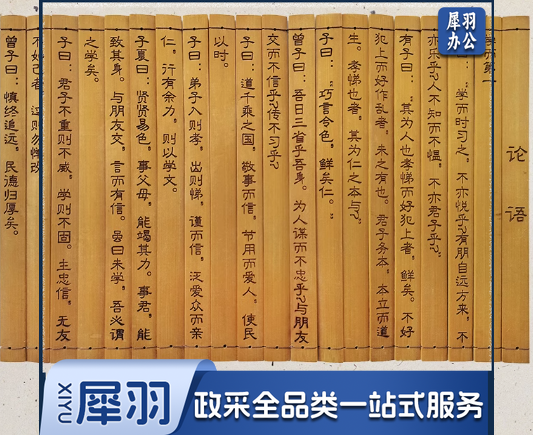 犀羽
办公
论语
学而第一
："学而时习之，不亦悦乎?有朋自远方来，不
亦乐乎?人不知而不愠，不亦君子乎?"
有子曰："其为人也孝悌而好犯上者，鲜矣。不好
犯上而好作乱者，未之有也。君子务本，本立而道
生。孝悌也者，其为仁之本与?"
子曰："巧言令色，鲜矣仁。"
曾子曰：吾日三省乎吾身。为人谋而不忠乎?与朋友
交而不信乎?传不习乎?
子曰：道千乘之国，敬事而信，节用而爱人，使民
以时。
子曰：弟子入则孝，出则悌，谨而信，泛爱众而亲
仁，行有余力，则以学文。
子夏曰：贤贤易色，事父母，能竭其力。事君，能
致其身。与朋友交，言而有信。虽曰未学，吾必谓
之学矣。
子曰：君子不重则不威，学则不固。主忠信，无友
不如己者，过则勿惮改
曾子曰：慎终追远，民德归厚矣。
XIYU
犀羽
政采全品类一站式服务